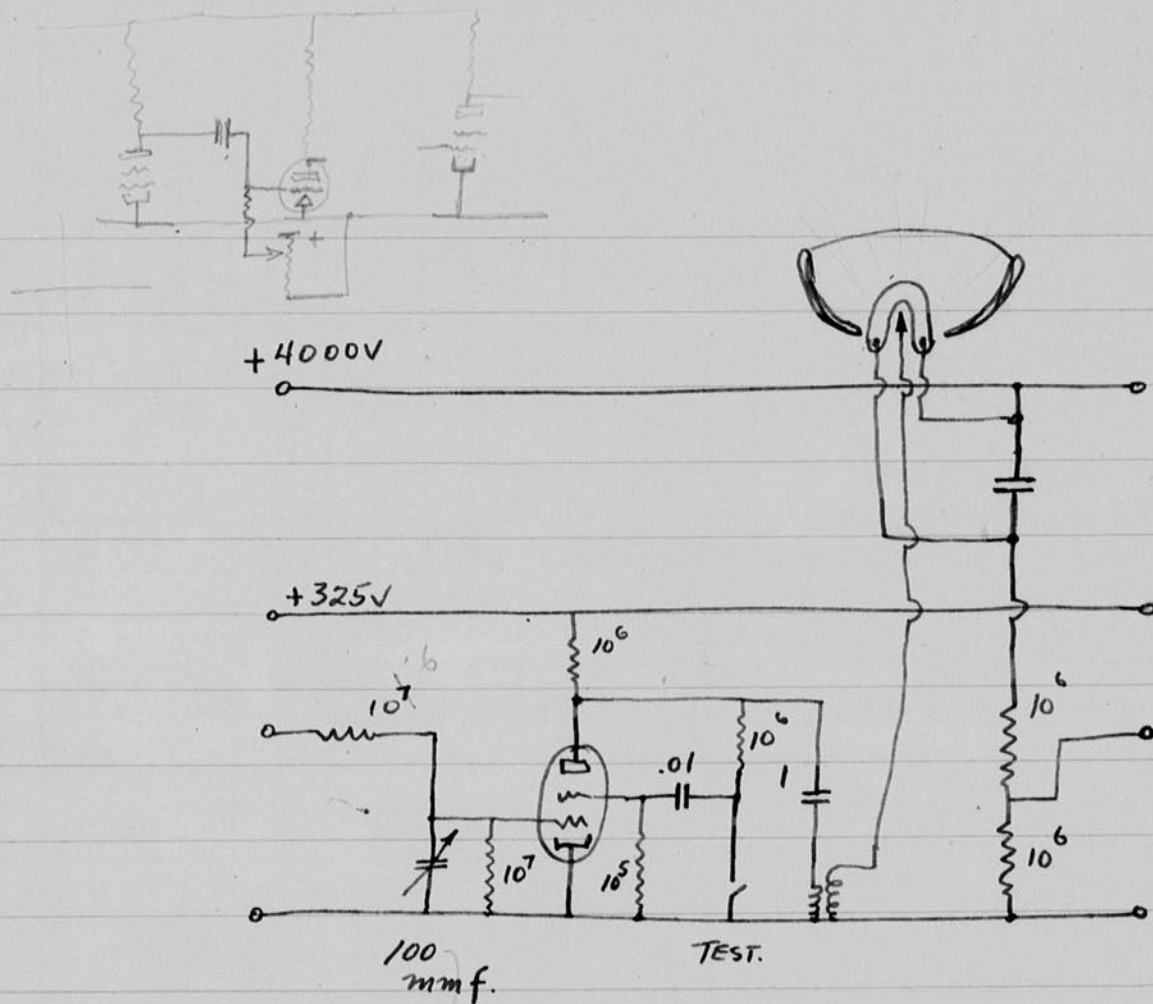 +
+4000V
+325V
10⁶
6
10⁷
10⁶
10⁶
.01
1
10⁷
10⁵
10⁶
100
mmf.
TEST.